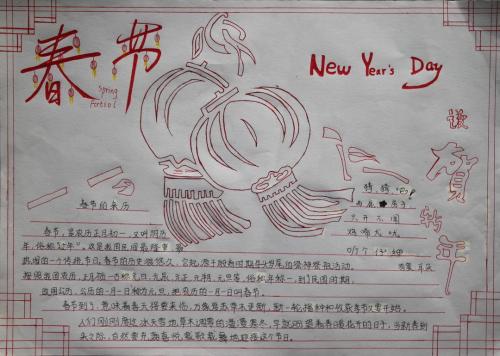 春节
Spring
Festival
New Year's Day
谈
贺
新
年
春节的来历
春节,是农历正月初一,又叫阴历
年,俗称"过年"。这是我国民间最隆重最
热闹的一个传统节日。春节的历史很悠久,它起源于殷商时期年头岁尾的祭神祭祖活动。
按照我国农历,正月初一古称元日、元辰、元正、元朔、元旦等,俗称年初一,到民国时期,
改用公历,公历的一月一日称为元旦,把农历的一月一日叫春节。
春节到了,意味着春天将要来临,万象复苏草木更新,新一轮播种和收获季节又要开始。
人们刚刚度过冰天雪地草木凋零的漫漫寒冬,早就盼望着春暖花开的日子,当新春到
来之际,自然要充满喜悦载歌载舞地迎接这个节日。
猜猜吧!
兄弟
大